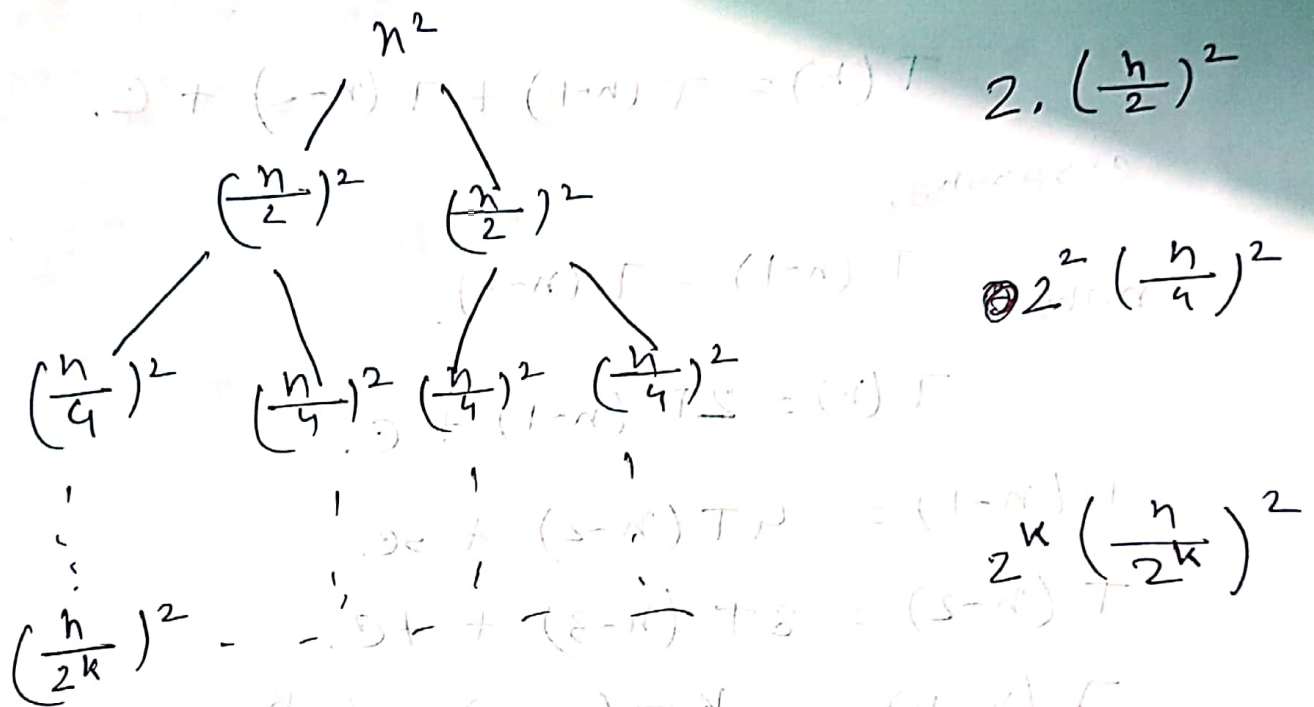 n²
2. (n/2)²
(n/2)² (n/2)²
2² (n/4)²
(n/4)² (n/4)² (n/4)² (n/4)²
2^k (n/2^k)²
(n/2^k)² - - - - - -